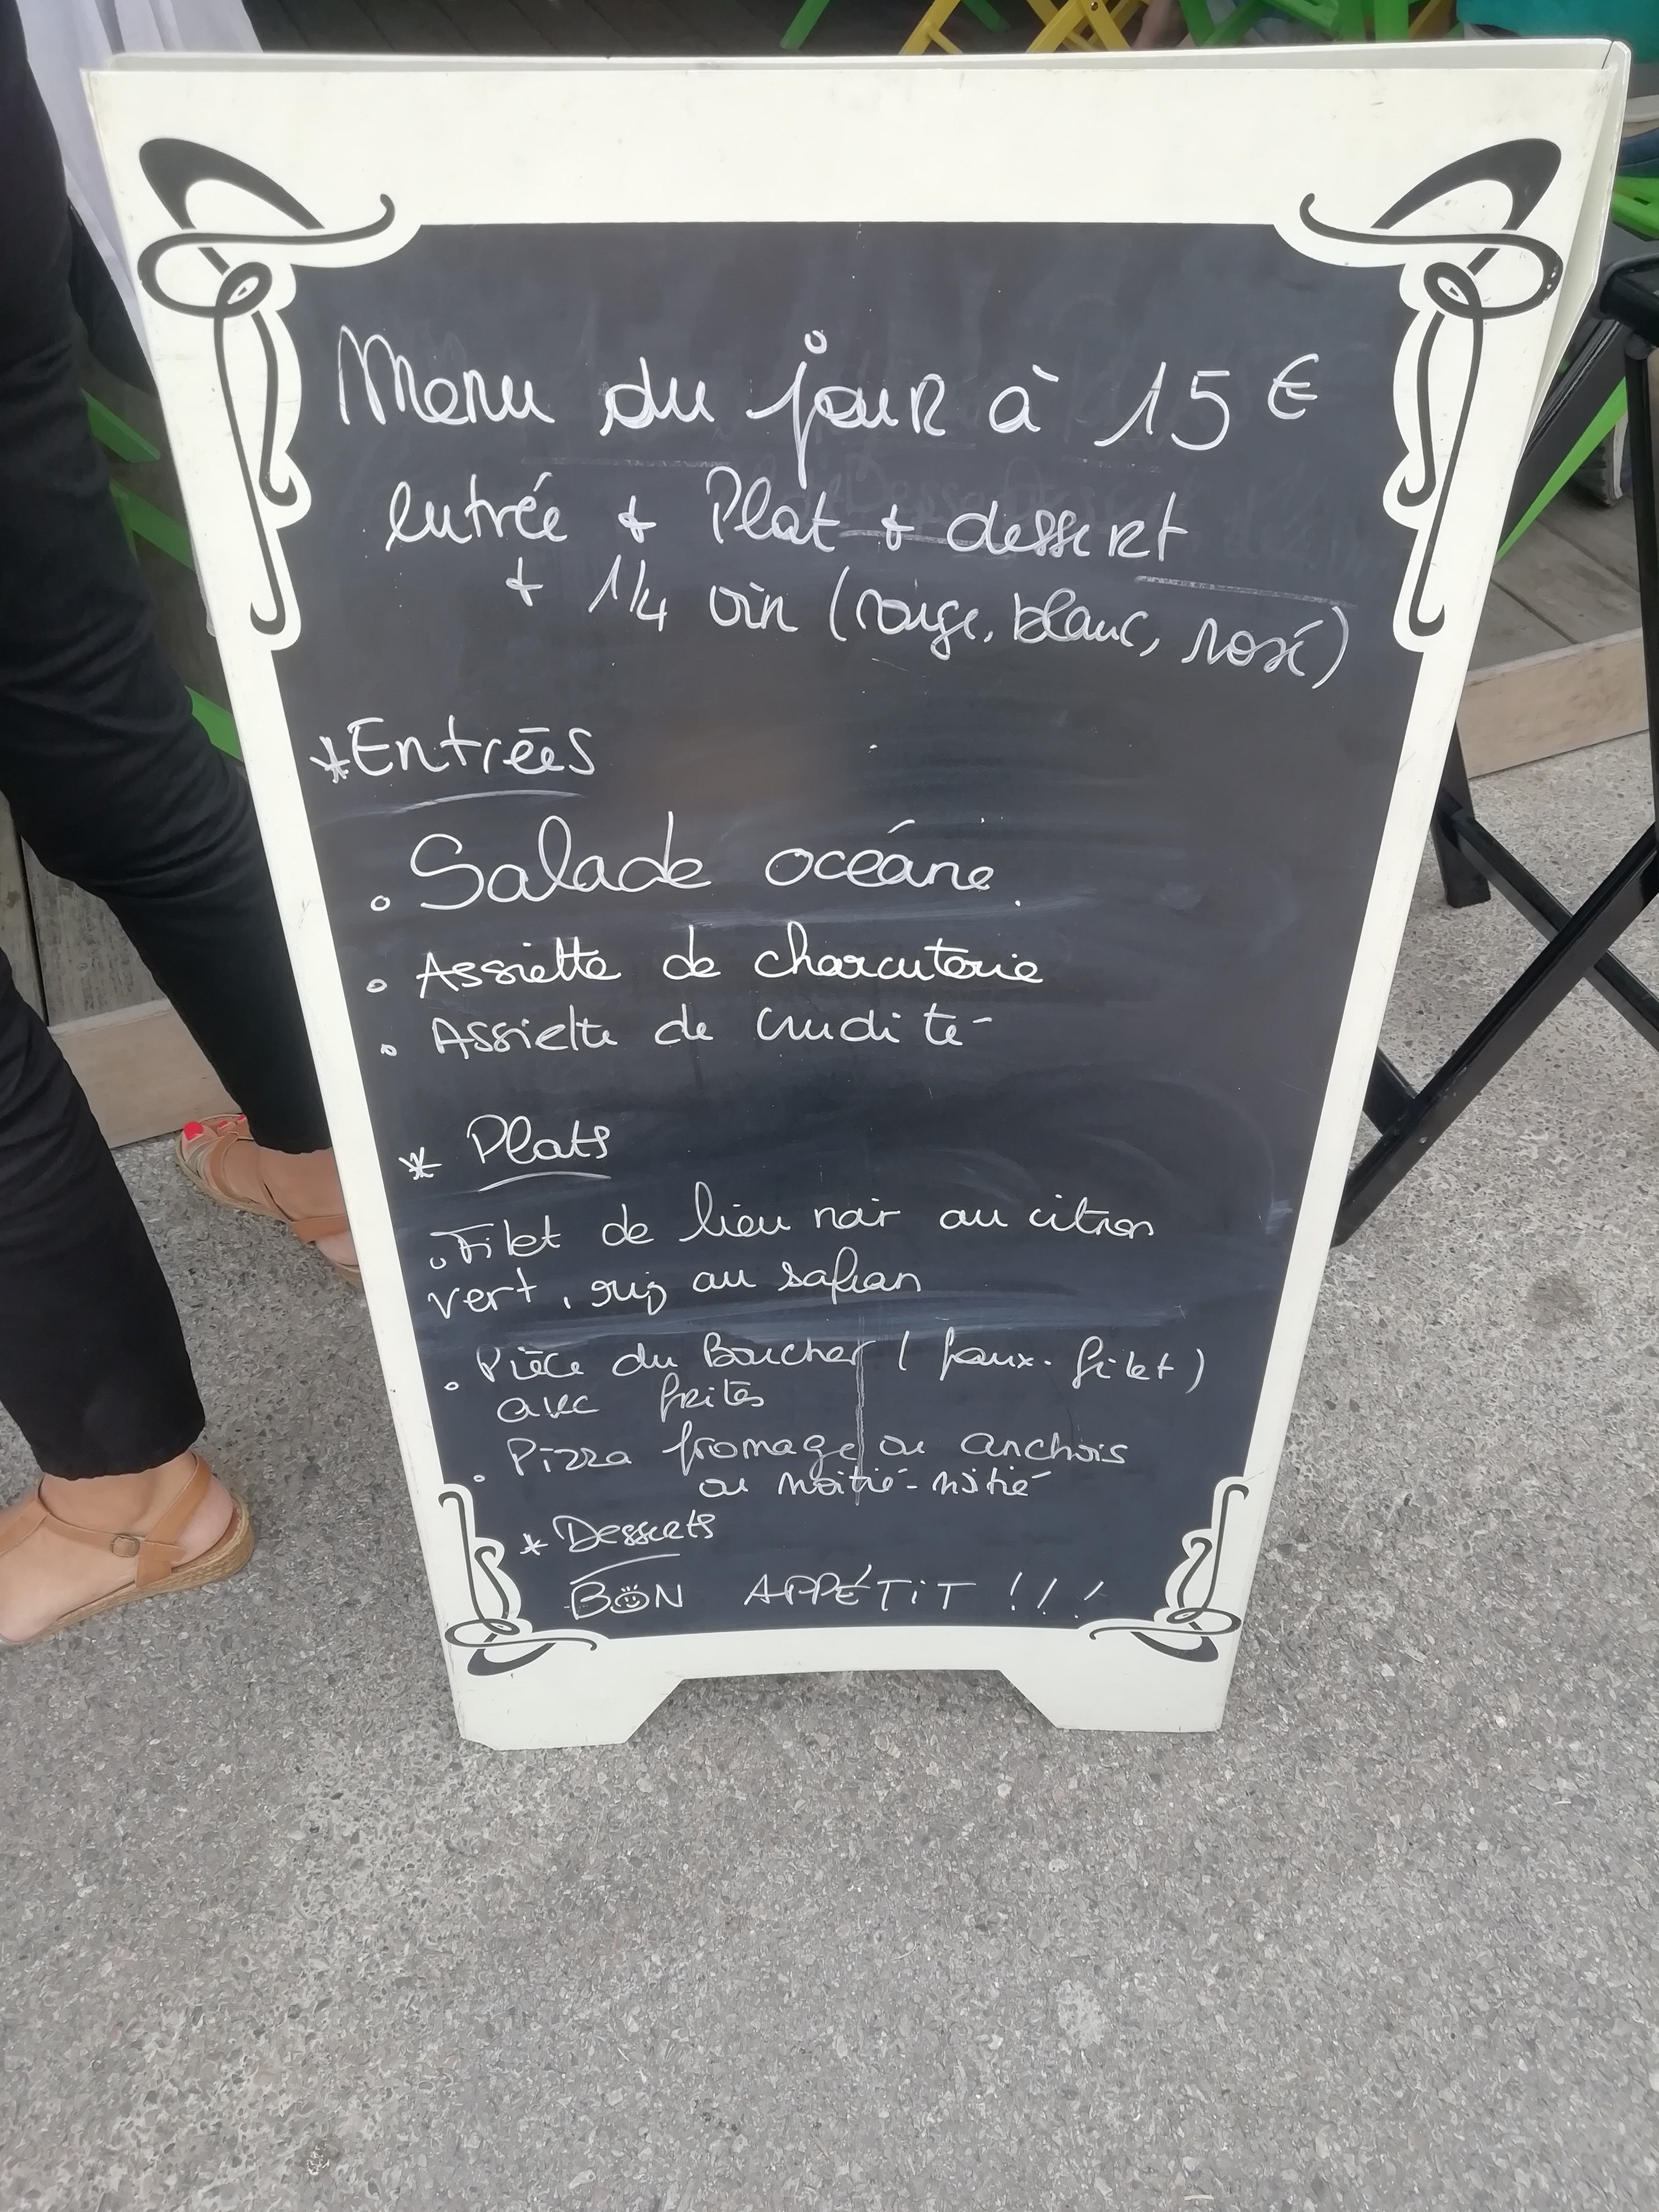 Menu du jour à 15 €
entrée + Plat + dessert
+ 1/4 vin (rouge, blanc, rosé)
* Entrées
• Salade océane.
• Assiette de charcuterie
• Assiette de crudité
* Plats
• Filet de lieu noir au citron
vert, riz au safran
• Pièce du Boucher (faux-filet)
avec frites
• Pizza fromage ou anchois
ou moitié-moitié
* Desserts
BON APPÉTIT !!!